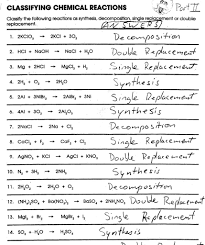 CLASSIFYING CHEMICAL REACTIONS Part II
Classify the following reactions as synthesis, decomposition, single replacement or double
replacement. (ANSWERS)
1. 2KClO₃ → 2KCl + 3O₂ Decomposition
2. HCl + NaOH → NaCl + H₂O Double Replacement
3. Mg + 2HCl → MgCl₂ + H₂ Single Replacement
4. 2H₂ + O₂ → 2H₂O Synthesis
5. 2Al + 3NiBr₂ → 2AlBr₃ + 3Ni Single Replacement
6. 4Al + 3O₂ → 2Al₂O₃ Synthesis
7. 2NaCl → 2Na + Cl₂ Decomposition
8. CaCl₂ + F₂ → CaF₂ + Cl₂ Single Replacement
9. AgNO₃ + KCl → AgCl + KNO₃ Double Replacement
10. N₂ + 3H₂ → 2NH₃ Synthesis
11. 2H₂O₂ → 2H₂O + O₂ Decomposition
12. (NH₄)₂SO₄ + Ba(NO₃)₂ → BaSO₄ + 2NH₄NO₃ Double Replacement
13. MgI₂ + Br₂ → MgBr₂ + I₂ Single Replacement
14. SO₃ + H₂O → H₂SO₄ Synthesis